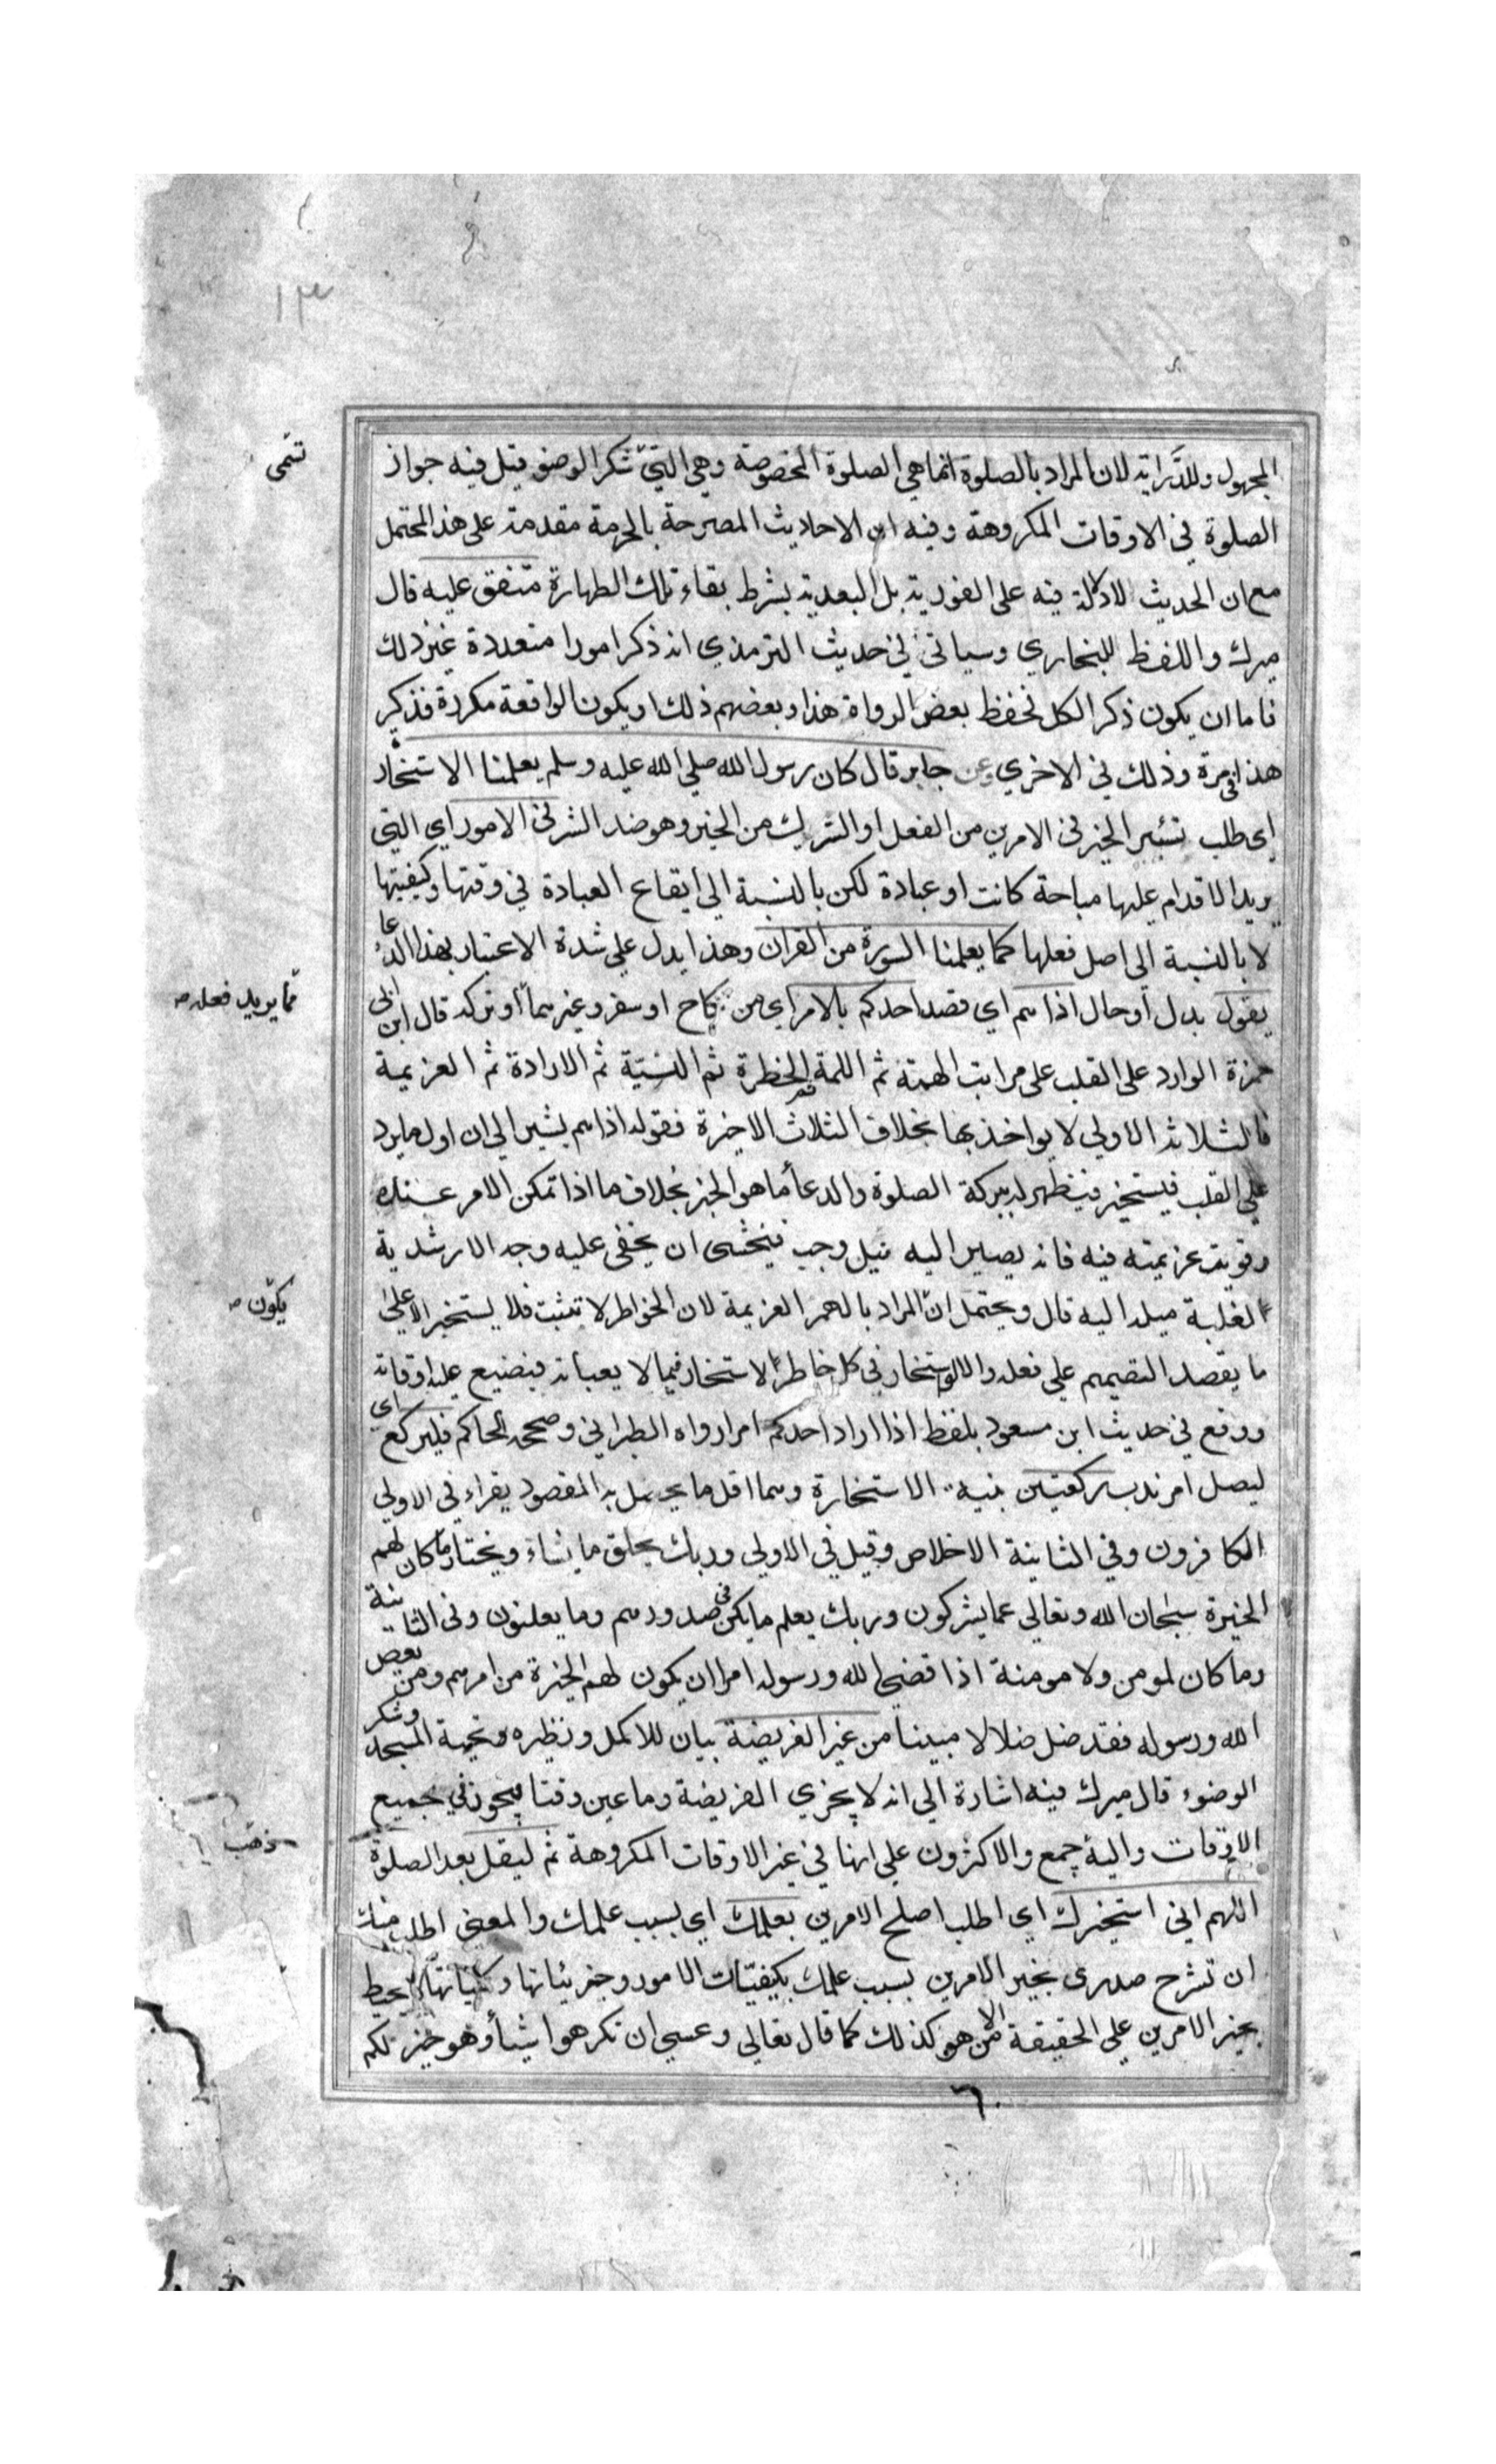 المجهول وللدراية لان المراد بالصلوة انما هي الصلوة المخصوصة وهي التي شكر الوضو قيل فيه جواز
تسمى
الصلوة في الاوقات المكروهة وفيه ان الاحاديث المصرحة بالحرمة مقدمة على هذا المحتمل
مع ان الحديث لا دلالة فيه على الفورية بل البعدية بشرط بقاء تلك الطهارة متفق عليه قال
ميرك واللفظ للبخاري وسياتي في حديث الترمذي انه ذكر امورا متعددة غير ذلك
فاما ان يكون ذكر الكل فحفظ بعض الرواة هذا وبعضهم ذلك او يكون الواقعة مكررة فذكر
هذا في مرة وذلك في الاخري وعن جابر قال كان رسول الله صلي الله عليه وسلم يعلمنا الاستخارة
اي طلب تيسر الخير في الامرين من الفعل او الترك من الخير وهو ضد الشر في الامور اي التي
يريد الاقدام عليها مباحة كانت او عبادة لكن بالنسبة الي ايقاع العبادة في وقتها وكيفيتها
لا بالنسبة الي اصل فعلها كما يعلمنا السورة من القران وهذا يدل علي شدة الاعتناء بهذا الدعا
يقول بدل او حال اذا هم اي قصد احدكم بالامر اي من نكاح او سفر وغيرهما او تركه قال ابن ابي
مما يريد فعله صح
جمرة الوارد على القلب على مراتب الهمة ثم اللمة ثم الخطرة ثم النية ثم الارادة ثم العزيمة
فالثلاثة الاولي لا يواخذ بها بخلاف الثلاث الاخيرة فقوله اذا هم يشير الي ان اول ما يرد
علي القلب فيستخير فيظهر له ببركة الصلوة والدعا ما هو الخير بخلاف ما اذا تمكن الامر عنده
وقويت عزيمته فيه فانه يصير اليه ميل وحب فيخشى ان يخفى عليه وجه الارشدية
لغلبة ميله اليه قال ويحتمل ان المراد بالهم العزيمة لان الخواطر لا تثبت فلا يستخير الا علي
يكون صح
ما يقصد التصميم علي فعله والا لو استخار في كل خاطر لاستخار فيما لا يعبأ به فيضيع عليه اوقاته
ووقع في حديث ابن مسعود بلفظ اذا اراد احدكم امرا رواه الطبراني وصححه الحاكم فليركع اي
ليصل امر ندب ركعتين بنية الاستخارة وهما اقل ما يحصل به المقصود يقراء في الاولي
الكافرون وفي الثانية الاخلاص وقيل في الاولي وربك يخلق ما يشاء ويختار ما كان لهم
الخيرة سبحان الله وتعالي عما يشركون وربك يعلم ما تكن صدورهم وما يعلنون وفي الثانية
وما كان لمومن ولا مومنة اذا قضى الله ورسوله امرا ان يكون لهم الخيرة من امرهم ومن يعص
الله ورسوله فقد ضل ضلالا مبينا من غير الفريضة بيان للاكمل ونظيره تحية المسجد وشكر
الوضوء قال ميرك فيه اشارة الي انه لا يجزي الفريضة وما عين وقتا فيجوز في جميع
الاوقات واليه جمع والاكثرون علي انها في غير الاوقات المكروهة ثم ليقل بعد الصلوة
ذهب
اللهم اني استخيرك اي اطلب اصلح الامرين بعلمك اي بسبب علمك والمعني اطلب منك
ان تشرح صدري بخير الامرين بسبب علمك بكيفيات الامور وجزئياتها وكلياتها اذ لا يحيط
بخير الامرين علي الحقيقة الا من هو كذلك كما قال تعالي وعسي ان تكرهوا شيأ وهو خير لكم